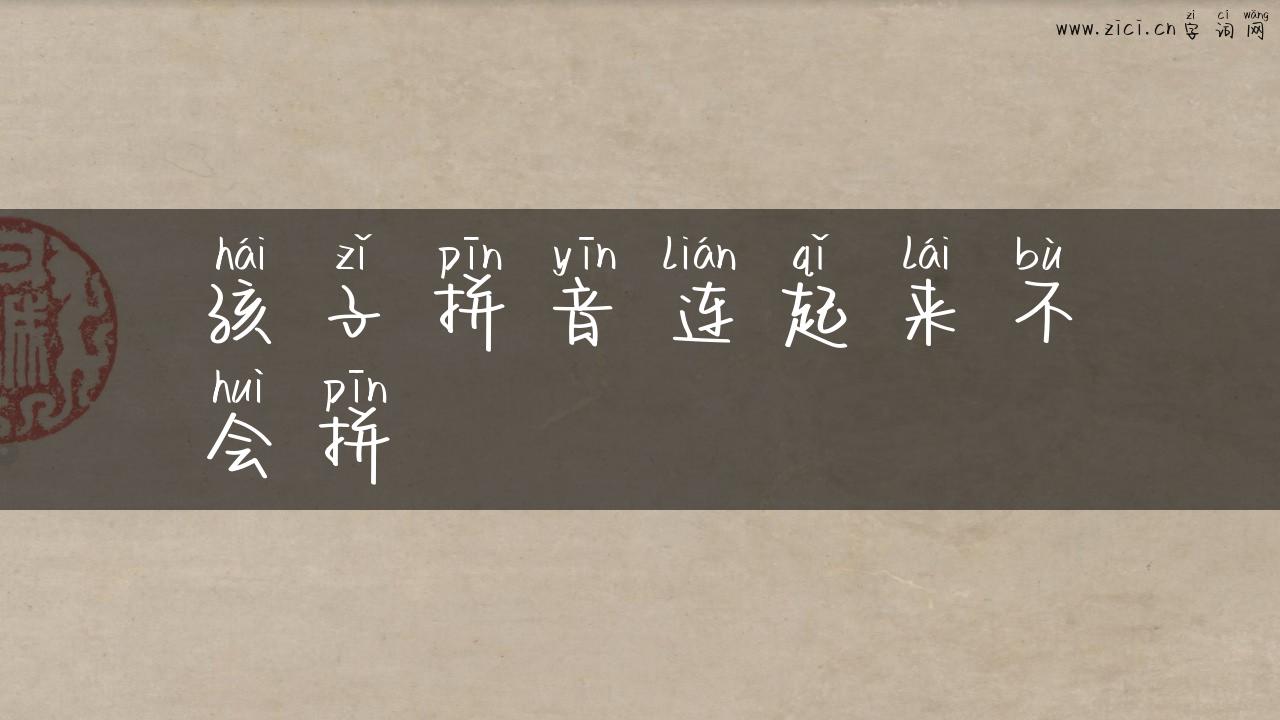 zì cí wǎng
www.zici.cn 字词网
hái zǐ pīn yīn lián qǐ lái bù
孩子拼音连起来不
huì pīn
会拼